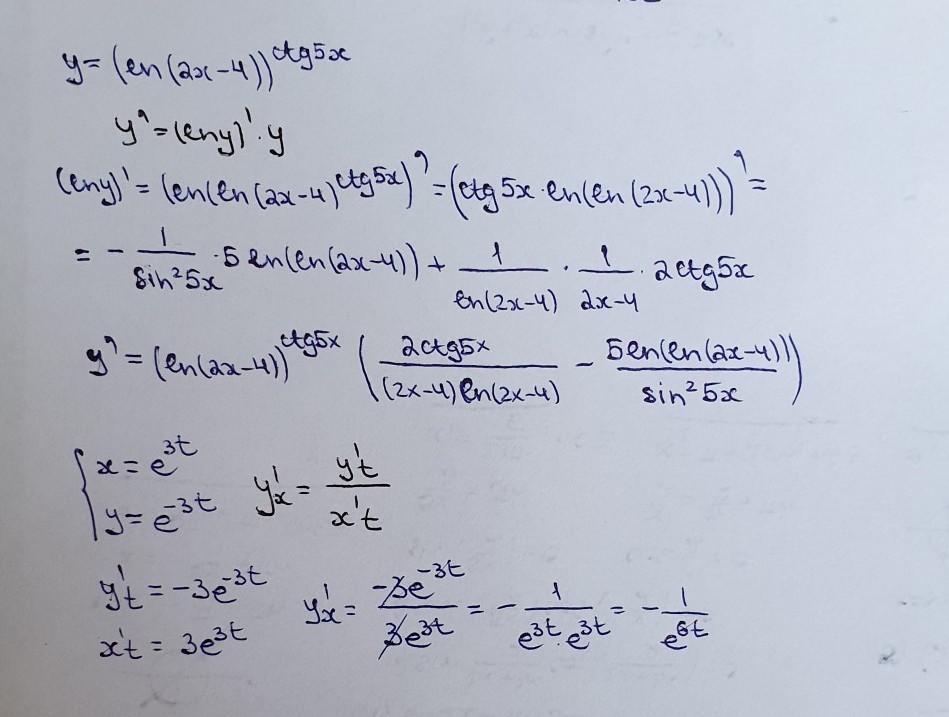 y = (ln(2x-4))^ctg5x
y' = (lny)'·y
(lny)' = (ln(ln(2x-4)^ctg5x)' = (ctg5x·ln(ln(2x-4)))' =
= - 1/sin²5x ·5 ln(ln(2x-4)) + 1/ln(2x-4) · 1/2x-4 · 2ctg5x
y' = (ln(2x-4))^ctg5x (2ctg5x/(2x-4)ln(2x-4) - 5ln(ln(2x-4))/sin²5x)
{x = e^3t
y = e^-3t y'x = y't/x't
y't = -3e^-3t
x't = 3e^3t y'x = -3e^-3t/3e^3t = - 1/e^3t·e^3t = - 1/e^6t